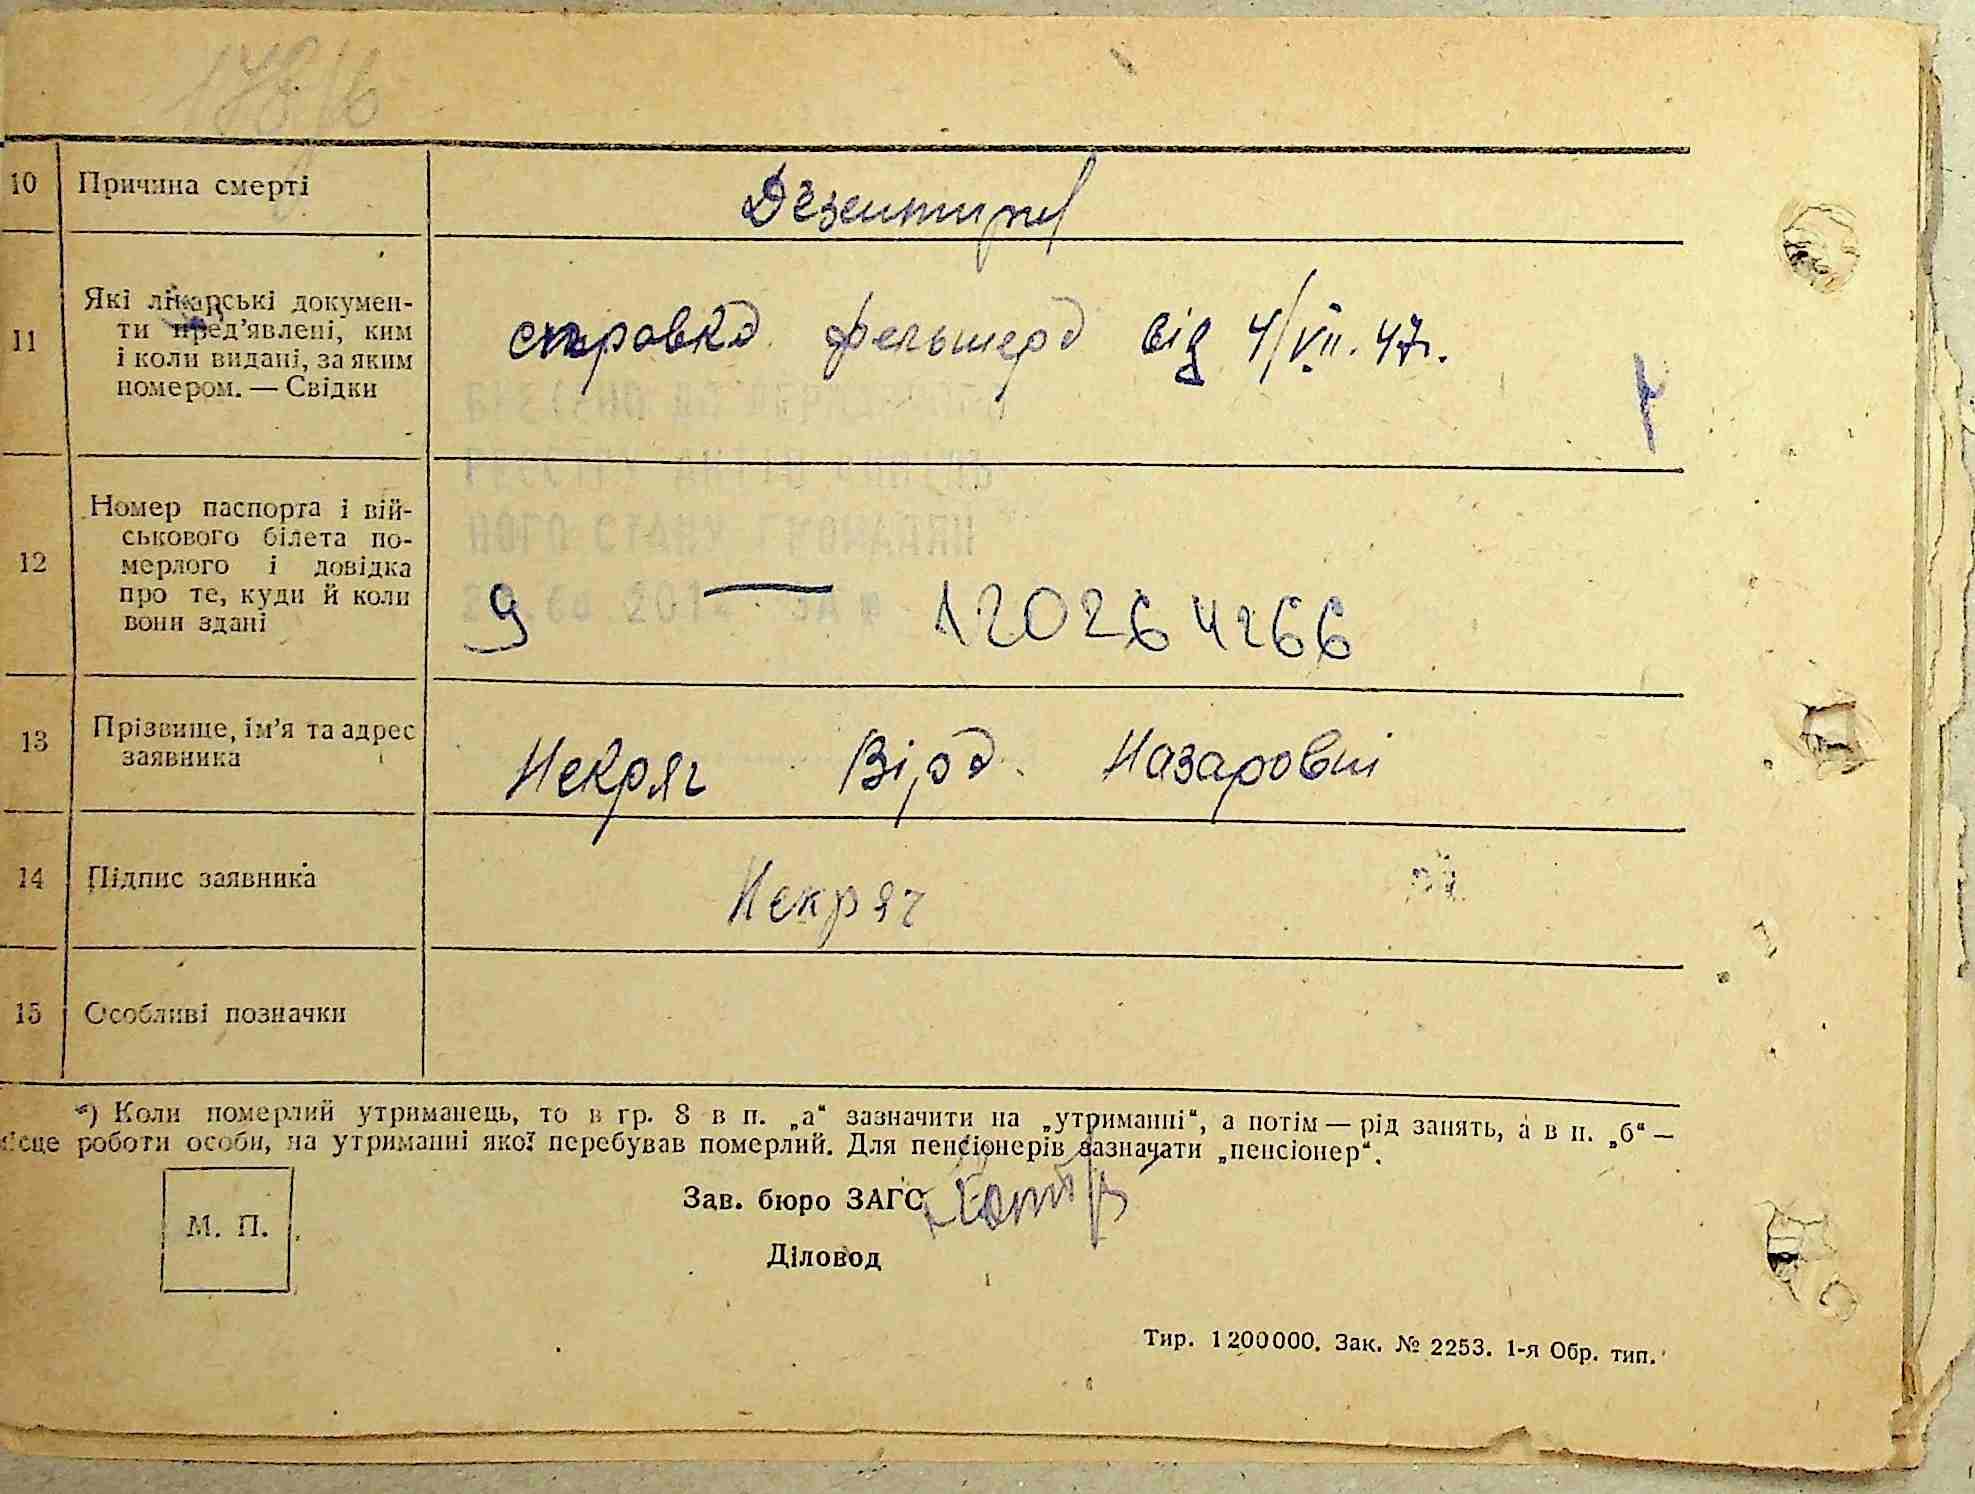 178/6
10 Причина смерті Дезентирія
11 Які лікарські докумен-
ти пред’явлені, ким
і коли видані, за яким
номером. — Свідки
справка фельшера від 4/VII. 47г.
ВНЕСЕНО ДО ДЕРЖАВНОГО
РЕЄСТРУ АКТІВ ЦИВІЛЬ
НОГО СТАНУ ГРОМАДЯН
12 Номер паспорта і вій-
ськового білета по-
мерлого і довідка
про те, куди й коли
вони здані
9 — 120264266
13 Прізвище, ім’я та адрес
заявника
Некряч Віра Назаровні
14 Підпис заявника Некряч
15 Особливі позначки
*) Коли померлий утриманець, то в гр. 8 в п. „а“ зазначити на „утриманні“, а потім — рід занять, а в п. „б“ —
місце роботи особи, на утриманні якої перебував померлий. Для пенсіонерів зазначати „пенсіонер“.
М. П.
Зав. бюро ЗАГС
Діловод
Тир. 1200000. Зак. № 2253. 1-я Обр. тип.